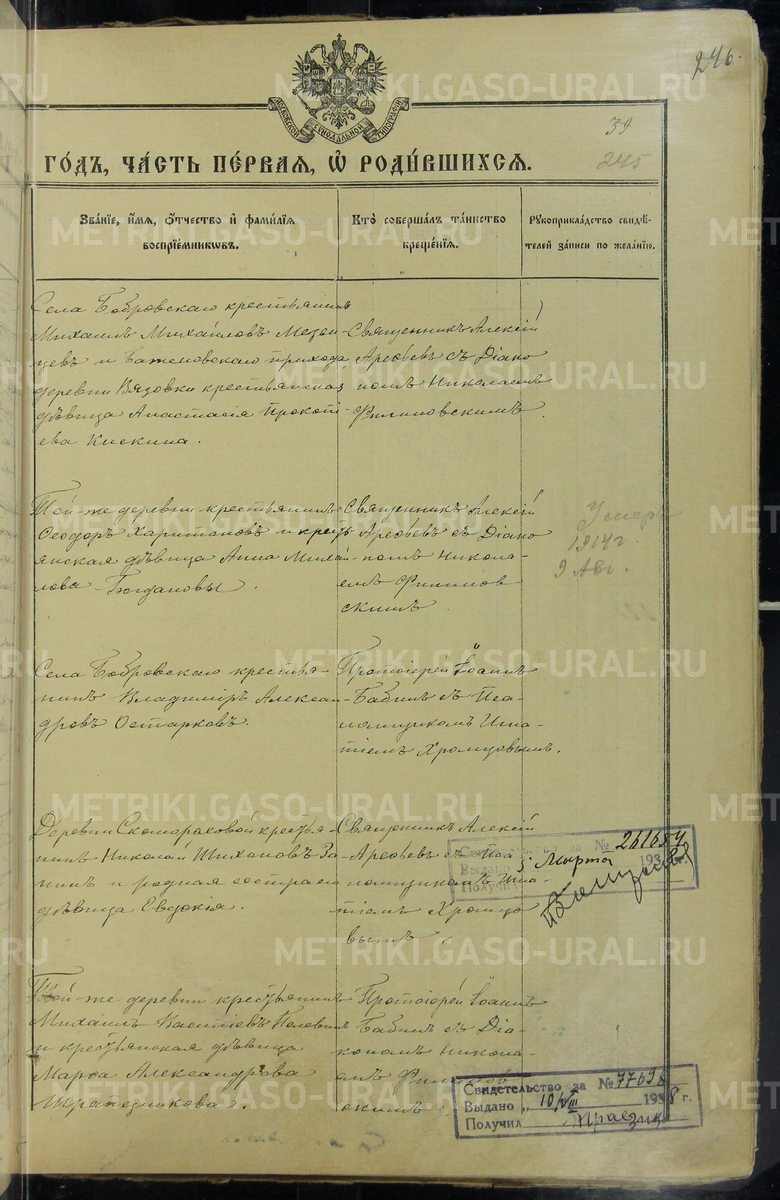 246.
МОСКОВСКОЙ СѴНОДАЛЬНОЙ ТИПОГРАФІИ
39
245
ГОДЪ, ЧАСТЬ ПЕРВАЯ, Ѡ РОДИВШИХСЯ.
Званіе, имя, отчество и фамилія воспріемниковъ.
Кто совершалъ таинство крещенія.
Рукоприкладство свидѣтелей записи по желанію.
Села Бобровскаго крестьянинъ
Михаилъ Михайловъ Мезен-
цевъ и Баженовскаго прихода
деревни Вязовки крестьянская
дѣвица Анастасія Прокопі-
ева Кискина.
Священникъ Алексій
Арефьевъ съ Діако
номъ Николаемъ
Филиповскимъ
Той-же деревни крестьянинъ
Ѳеодоръ Харитоновъ и кресть
янская дѣвица Анна Михай-
лова Богдановы.
Священникъ Алексій
Арефьевъ съ Діако
номъ Никола-
емъ Филипов
скимъ
Умеръ
1914 г.
9 Авг.
Села Бобровскаго крестья-
нинъ Владиміръ Алексан-
дровъ Остарковъ.
Протоіерей Іоаннъ
Бабинъ съ Пса-
ломщикомъ Игна-
тіемъ Хромцовымъ.
Деревни Скомораховой крестья-
нинъ Николай
и родная сестра его
дѣвица Евдокія.
Священникъ Алексій
Арефьевъ съ Пса-
ломщикомъ Игна-
тіемъ Хромцо
вымъ
Свидетельство за № 261654
Выдано 5 Марта 193
Получил
Той-же деревни крестьянинъ
Михаилъ Василіевъ Полевинъ
и крестьянская дѣвица
Марѳа Александрова
Трапезникова.
Протоіерей Іоаннъ
Бабинъ съ Діа-
кономъ Никола-
емъ Филипов
скимъ
Свидетельство за № 77696
Выдано „10/VIII 1938 г.
Получил
METRIKI.GASO-URAL.RU